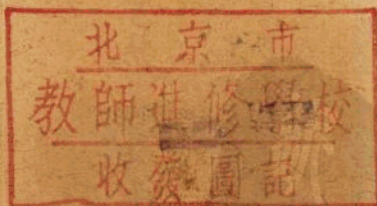 北京市
教師進修學校
收發圖記